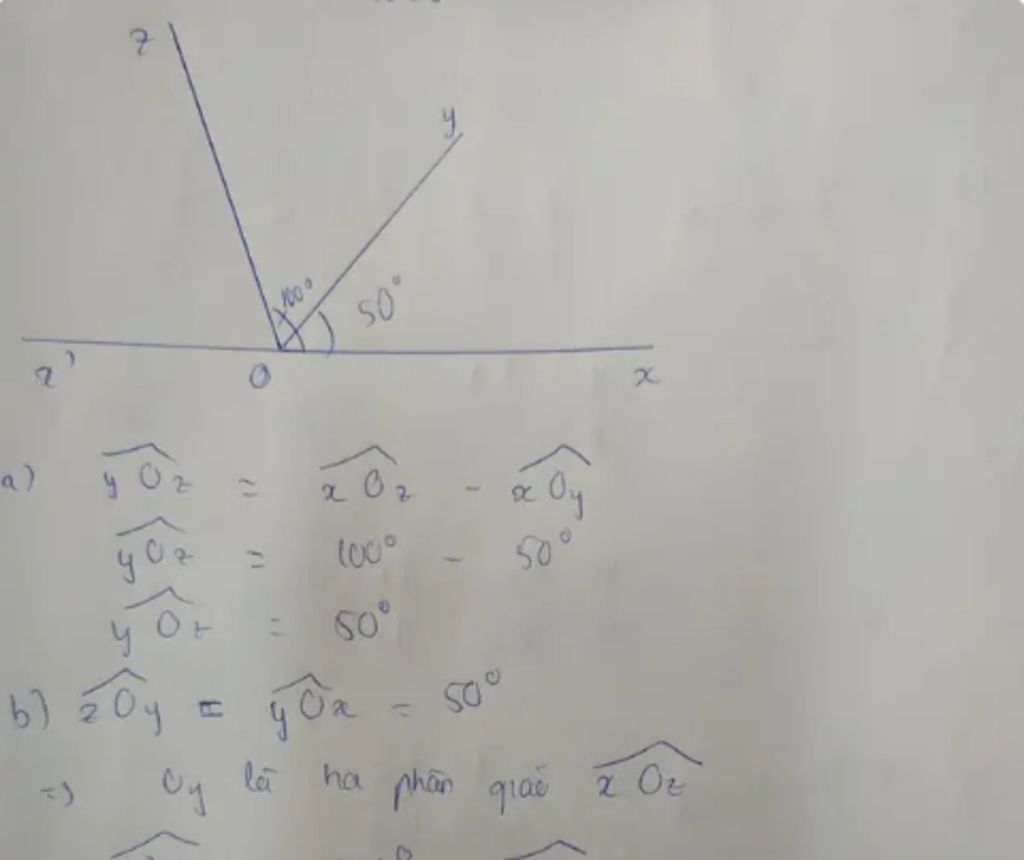 z
y
100°
50°
x'
O
x
a) yOz = xOz - xOy
yOz = 100° - 50°
yOz = 50°
b) zOy = yOx = 50°
=) Oy là tia phân giác xOz